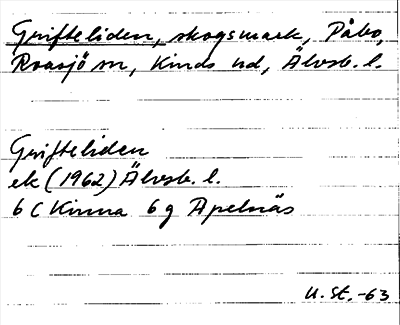 Grifteliden, skogsmark, Påbo,
Roasjö sn, Kinds hd, Älvsb. l.
Grifteliden
ek (1962) Älvsb. l.
6 C Kinna 6 g Apelnäs
U. St. -63